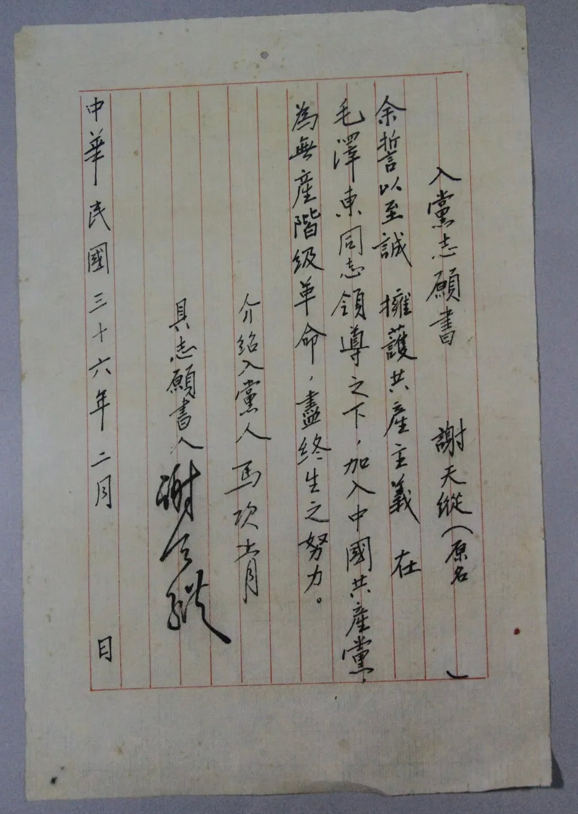 入黨志願書　謝天縱（原名　）
余誓以至誠　擁護共產主義　在
毛澤東同志領導之下，加入中國共產黨，
為無產階級革命，盡終生之努力。
介紹入黨人　馬次青
具志願書人　謝天縱
中華民國三十六年二月　日